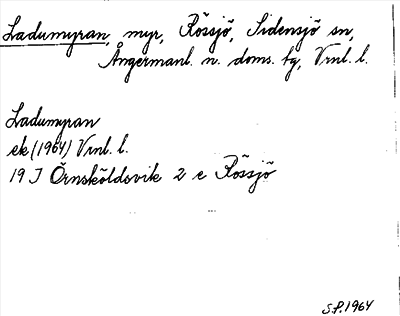 Ladumyran, myr, Rössjö, Sidensjö sn,
Ångermanl. n. doms. tg, Vrnl. l.
Ladumyran
ek (1964) Vrnl. l.
19 J Örnsköldsvik 2 e Rössjö
S.P. 1964